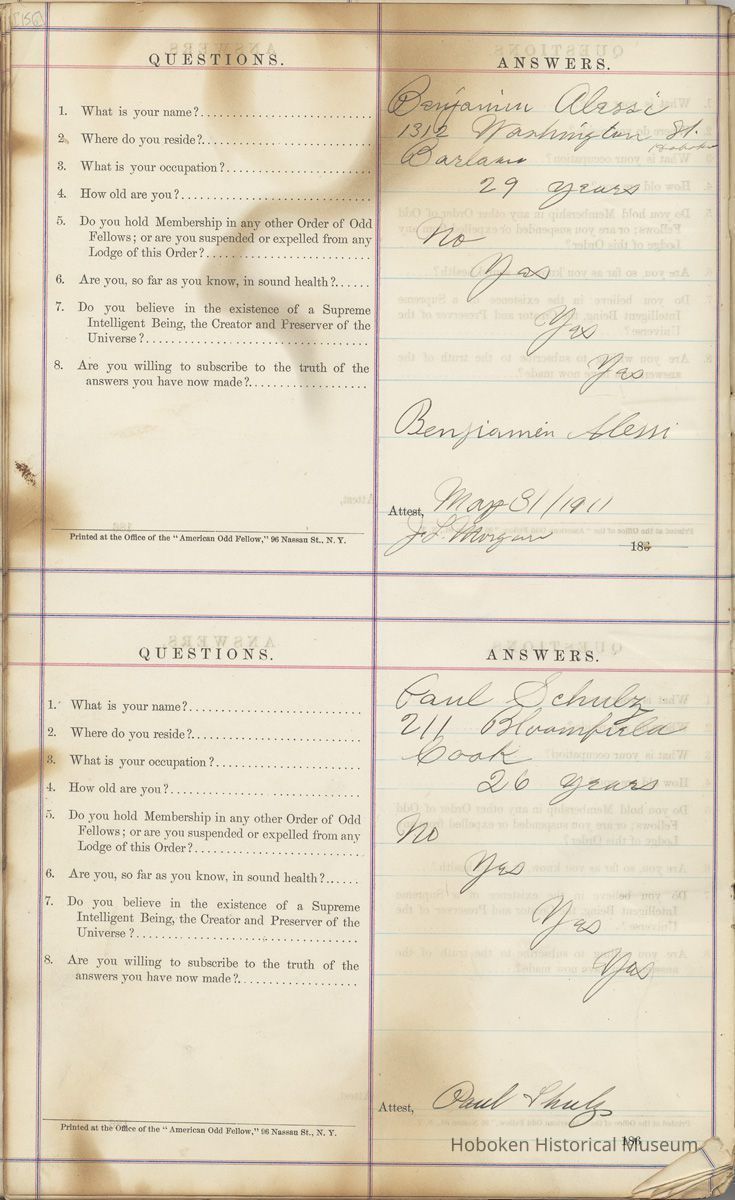 [156]
QUESTIONS.
ANSWERS.
1. What is your name?
Benjamin Alessi
2. Where do you reside?
1312 Washington St.
Hoboken
3. What is your occupation?
4. How old are you?
29 years
5. Do you hold Membership in any other Order of Odd
Fellows; or are you suspended or expelled from any
Lodge of this Order?
No
6. Are you, so far as you know, in sound health?
Yas
7. Do you believe in the existence of a Supreme
Intelligent Being, the Creator and Preserver of the
Universe?
Yas
8. Are you willing to subscribe to the truth of the
answers you have now made?
Yas
Benjiamin Alessi
Attest, May 31/1911
J. L. Morgan
186
Printed at the Office of the "American Odd Fellow," 96 Nassau St., N. Y.
QUESTIONS.
ANSWERS.
1. What is your name?
Paul Schulz
2. Where do you reside?
211 Bloomfield
3. What is your occupation?
Cook
4. How old are you?
26 years
5. Do you hold Membership in any other Order of Odd
Fellows; or are you suspended or expelled from any
Lodge of this Order?
No
6. Are you, so far as you know, in sound health?
Yes
7. Do you believe in the existence of a Supreme
Intelligent Being, the Creator and Preserver of the
Universe?
Yas
8. Are you willing to subscribe to the truth of the
answers you have now made?
Yas
Attest, Paul Shulz
186
Printed at the Office of the "American Odd Fellow," 96 Nassau St., N. Y.
Hoboken Historical Museum